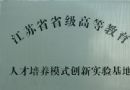 江苏省省级高等教育
人才培养模式创新实验基地